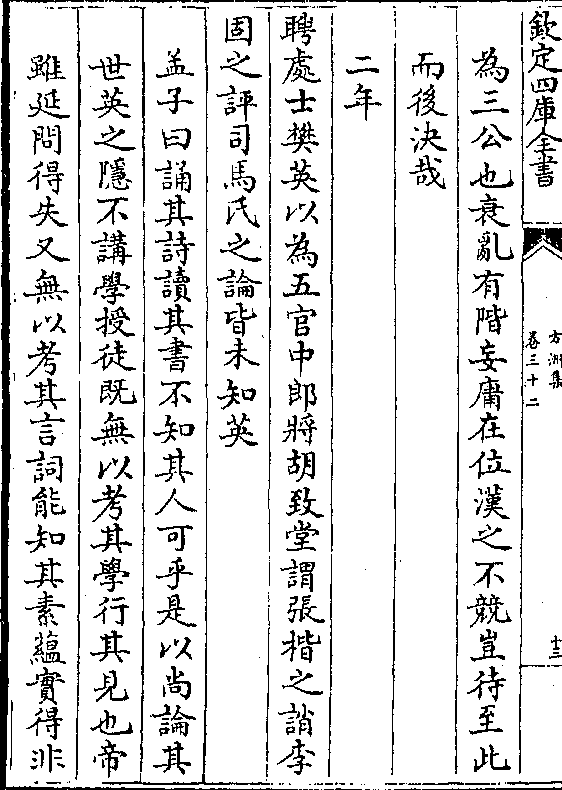 欽定四庫全書
方洲集
卷三十二
十三
為三公也衰亂有階妄庸在位漢之不競豈待至此
而後決哉
二年
聘處士樊英以為五官中郎將胡致堂謂張楷之誚李
固之評司馬氏之論皆未知英
孟子曰誦其詩讀其書不知其人可乎是以尚論其
世英之隱不講學授徒既無以考其學行其見也帝
雖延問得失又無以考其言詞能知其素蘊實得非